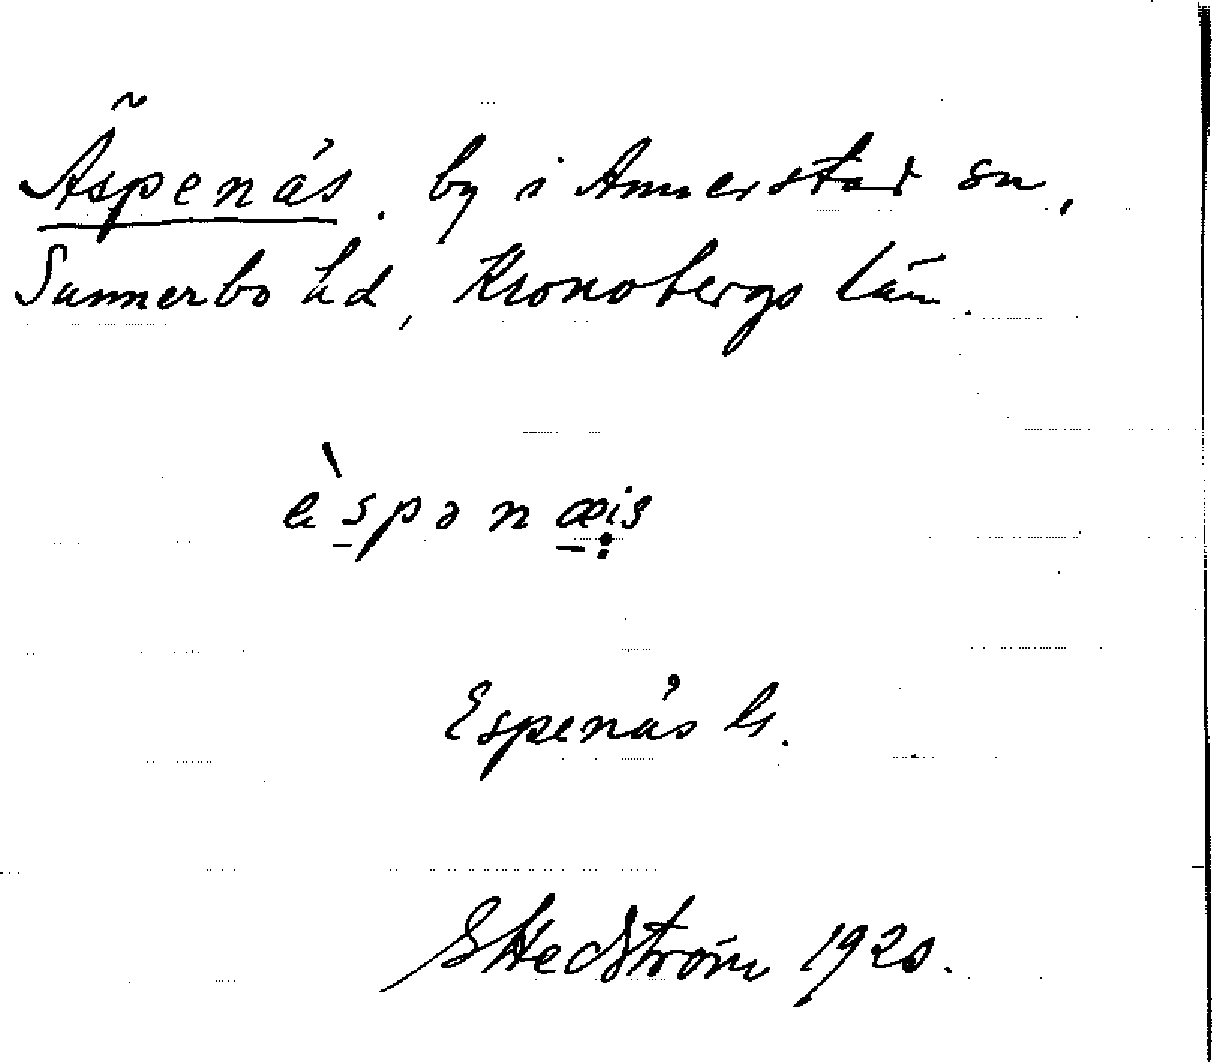 Äspenäs. by i Annerstad sn,
Sunnerbo hd, Kronobergs län.
èspənæis
Espenäs ls.
G Hedström 1920.